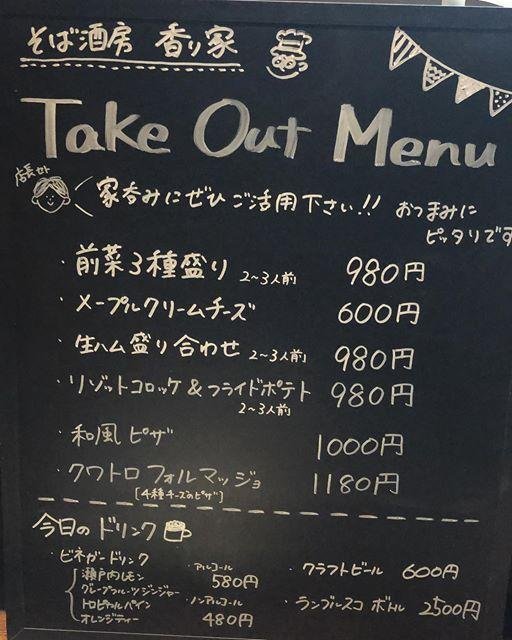 そば酒房 香り家
Take Out Menu
店長セト
家呑みにぜひご活用下さい!! おつまみに
ピッタリです
・前菜3種盛り 2~3人前 980円
・メープルクリームチーズ 600円
・生ハム盛り合わせ 2~3人前 980円
・リゾットコロッケ&フライドポテト 980円
2~3人前
・和風ピザ 1000円
・クワトロフォルマッジョ 1180円
[4種チーズのピザ]
今日のドリンク
・ビネガードリンク
瀬戸内レモン
グレープフルーツジンジャー
トロピカルパイン
オレンジティー
・アルコール
580円
・ノンアルコール
480円
・クラフトビール 600円
・ランブルスコ ボトル 2500円